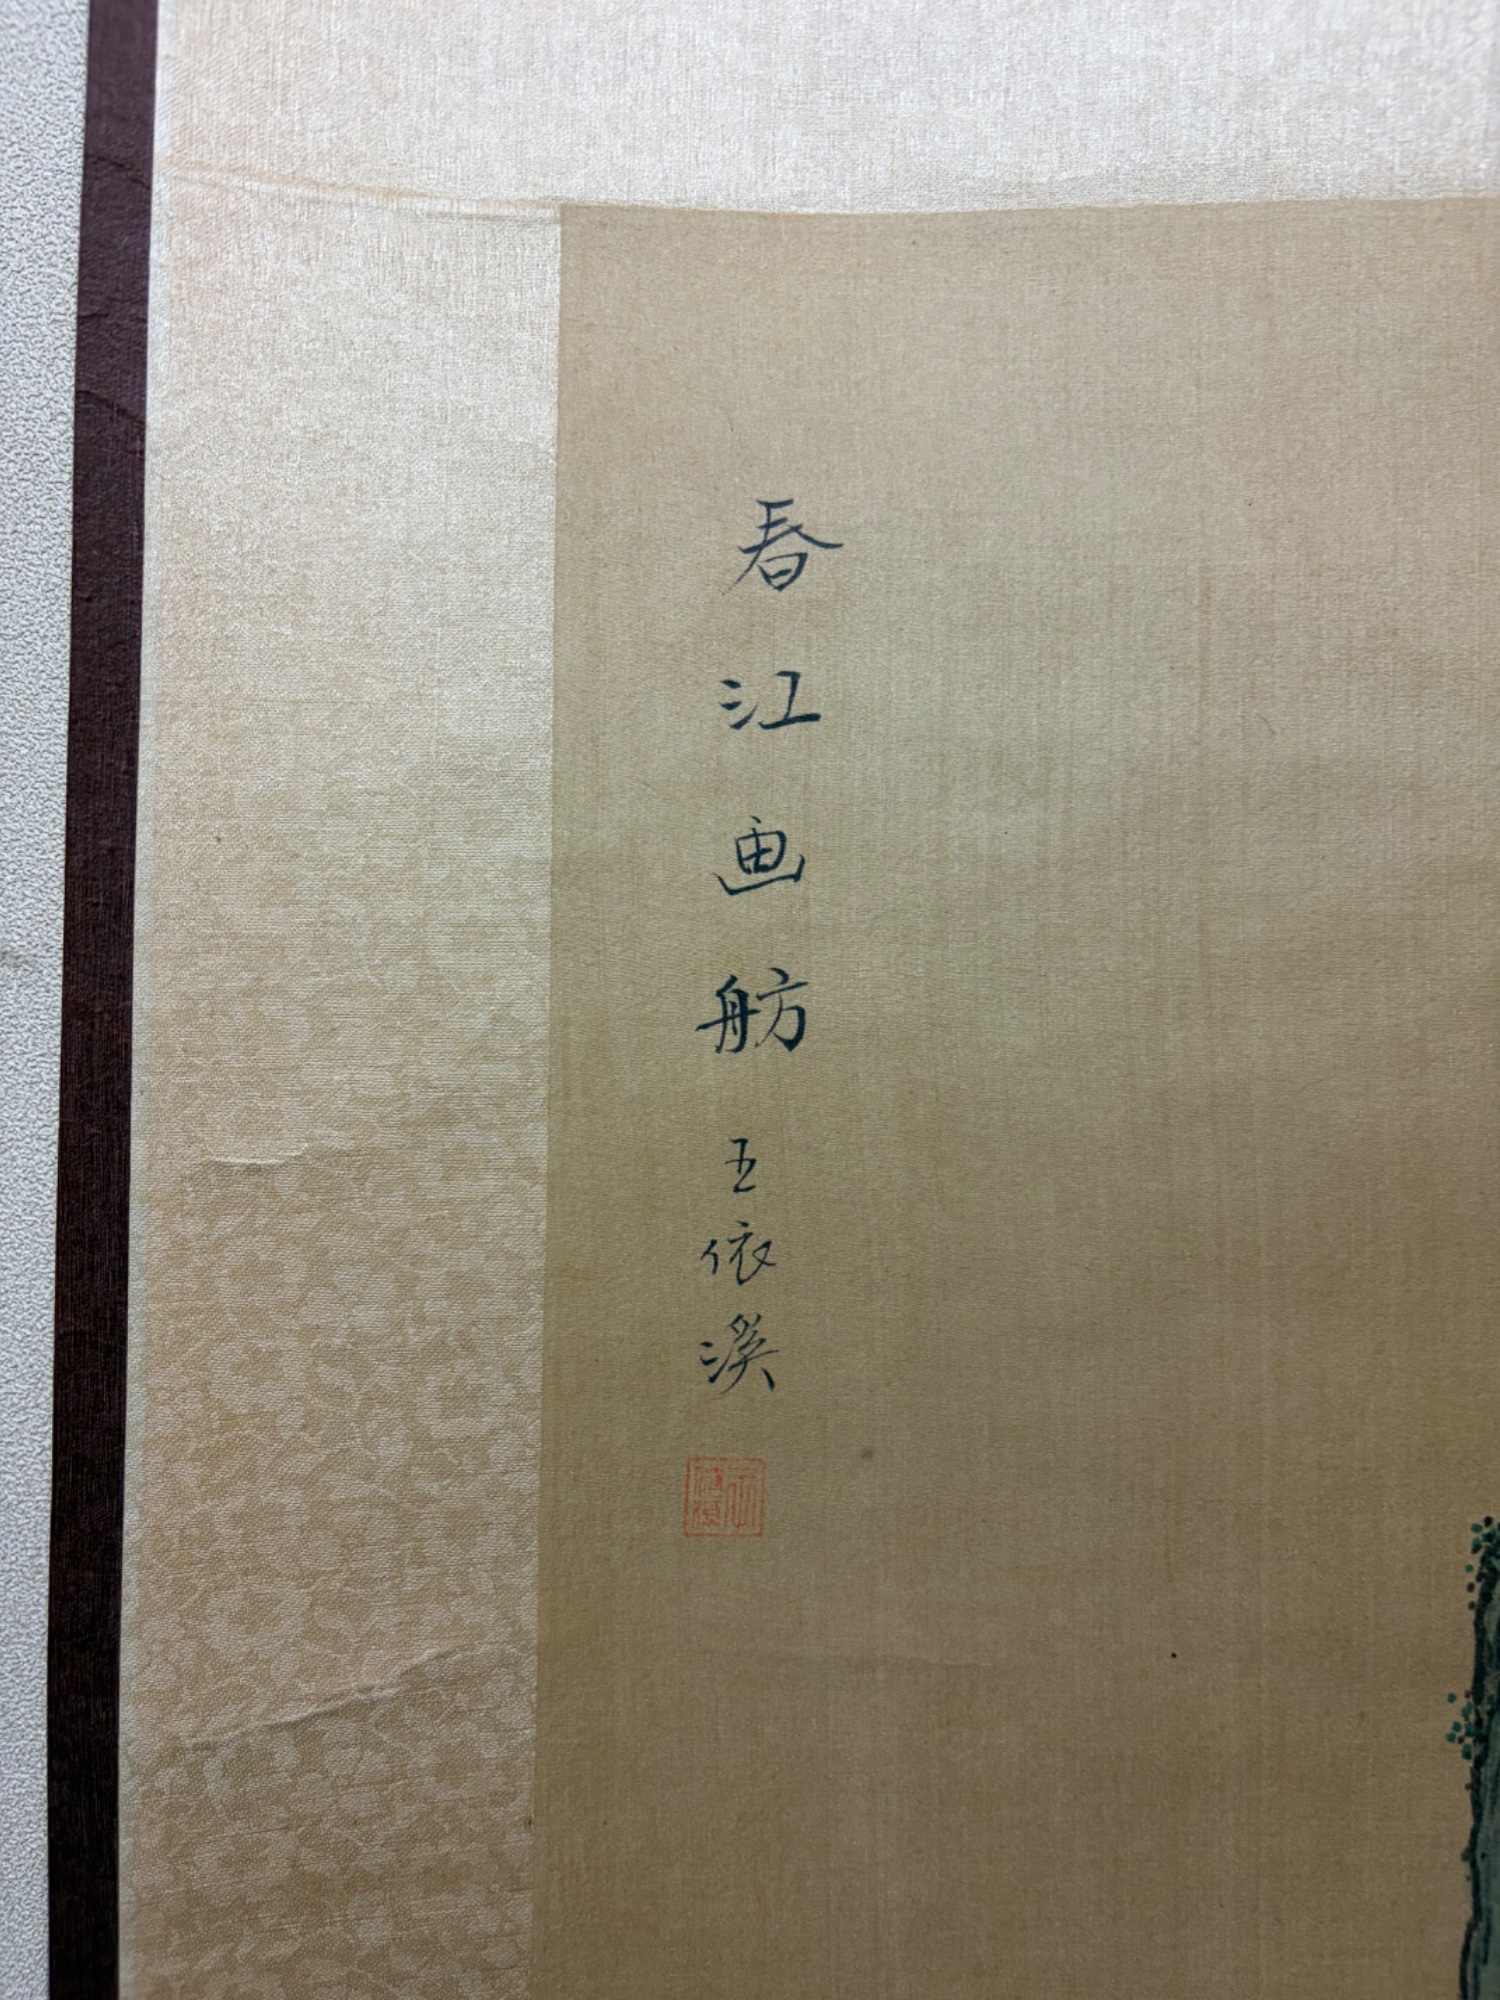 春江画舫 五依溪